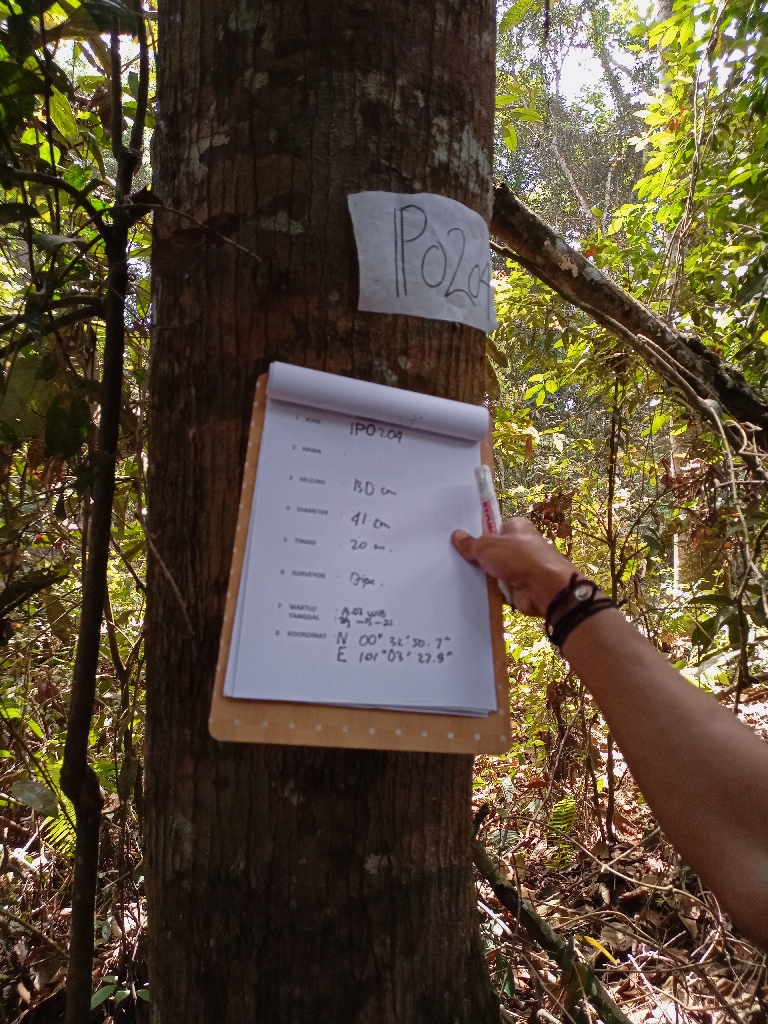 IPO204
1 KODE IPO204
2 NAMA
3 KELILING 130 cm
4 DIAMETER 41 cm
5 TINGGI 20 m.
6 SURVEYOR
7 WAKTU/ WIB
TANGGAL -5-21
8 KOORDINAT N 00° 32' 30.7"
E 101°03' 27.9"